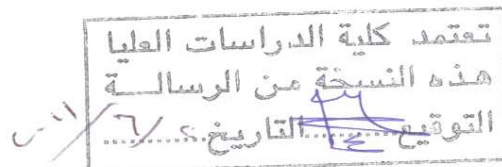 تعتمد كلية الدراسات العليا
هذه النسخة من الرسالــة
التوقيع............التاريخ